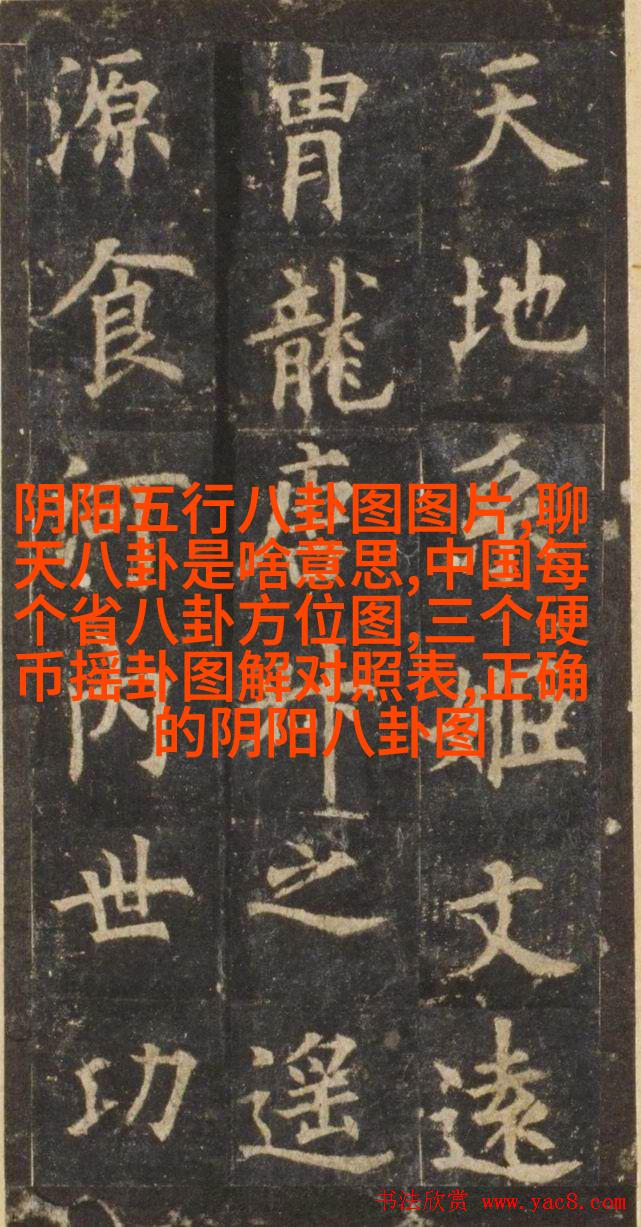 天地姬文遠
胄龍之遥
源食河内世功
阴阳五行八卦图图片,聊
天八卦是啥意思,中国每
个省八卦方位图,三个硬
币摇卦图解对照表,正确
的阴阳八卦图
书法欣赏 www.yac8.com